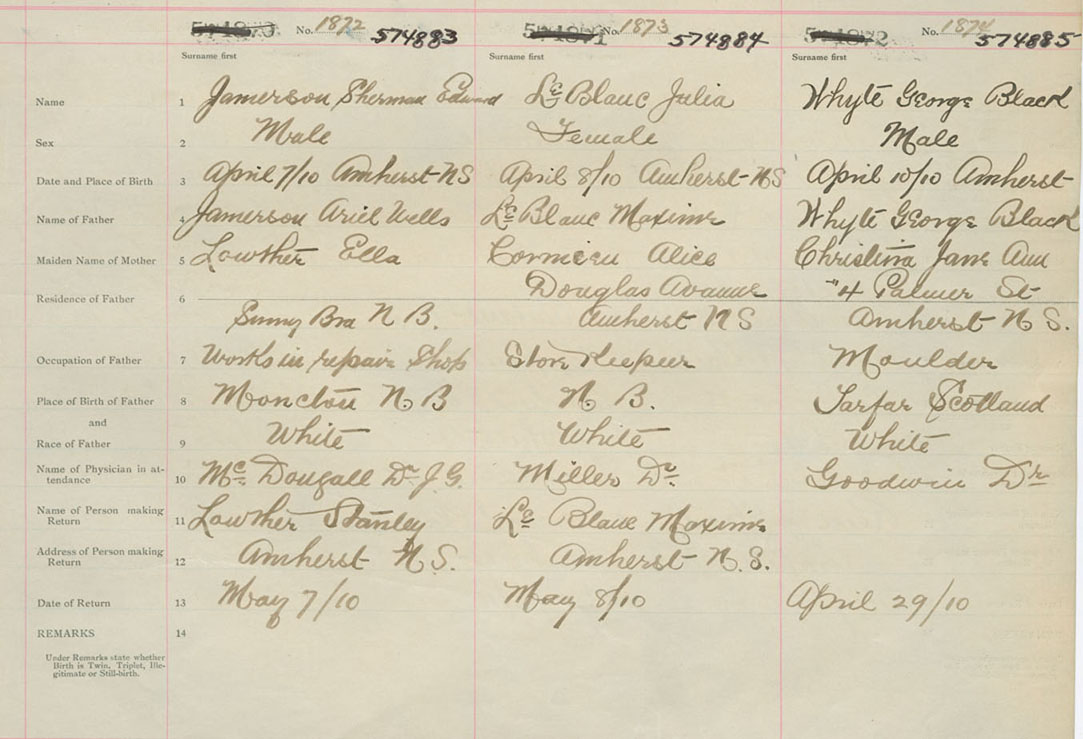 No. 1872 574883 No. 1873 574884 No. 1874 574885
Surname first Surname first Surname first
Name 1 Jamerson, Sherman Edward Le Blanc Julia Whyte George Black
Sex 2 Male Female Male
Date and Place of Birth 3 April 7/10 Amherst NS April 8/10 Amherst NS April 10/10 Amherst
Name of Father 4 Jamerson Ariel Wells Le Blanc Maxime Whyte George Black
Maiden Name of Mother 5 Lowther Ella Cormieu Alice Christina Jane Ann
Residence of Father 6 Douglas Avanue "4 Palmer St
Sunny Bra N B. Amherst N S Amherst N S.
Occupation of Father 7 Works in repair Shop Store Keepeer Moulder
Place of Birth of Father 8 Moncton N B N B. Farfar Scotland
and
Race of Father 9 White White White
Name of Physician in at-
tendance 10 Mc Dougall Dr J. G. Miller Dr Goodwin Dr
Name of Person making
Return 11 Lowther Stanley Le Blanc Maxime
Address of Person making
Return 12 Amherst N S. Amherst N. S.
Date of Return 13 May 7/10 May 8/10 April 29/10
REMARKS 14
Under Remarks state whether
Birth is Twin, Triplet, Ille-
gitimate or Still-birth.